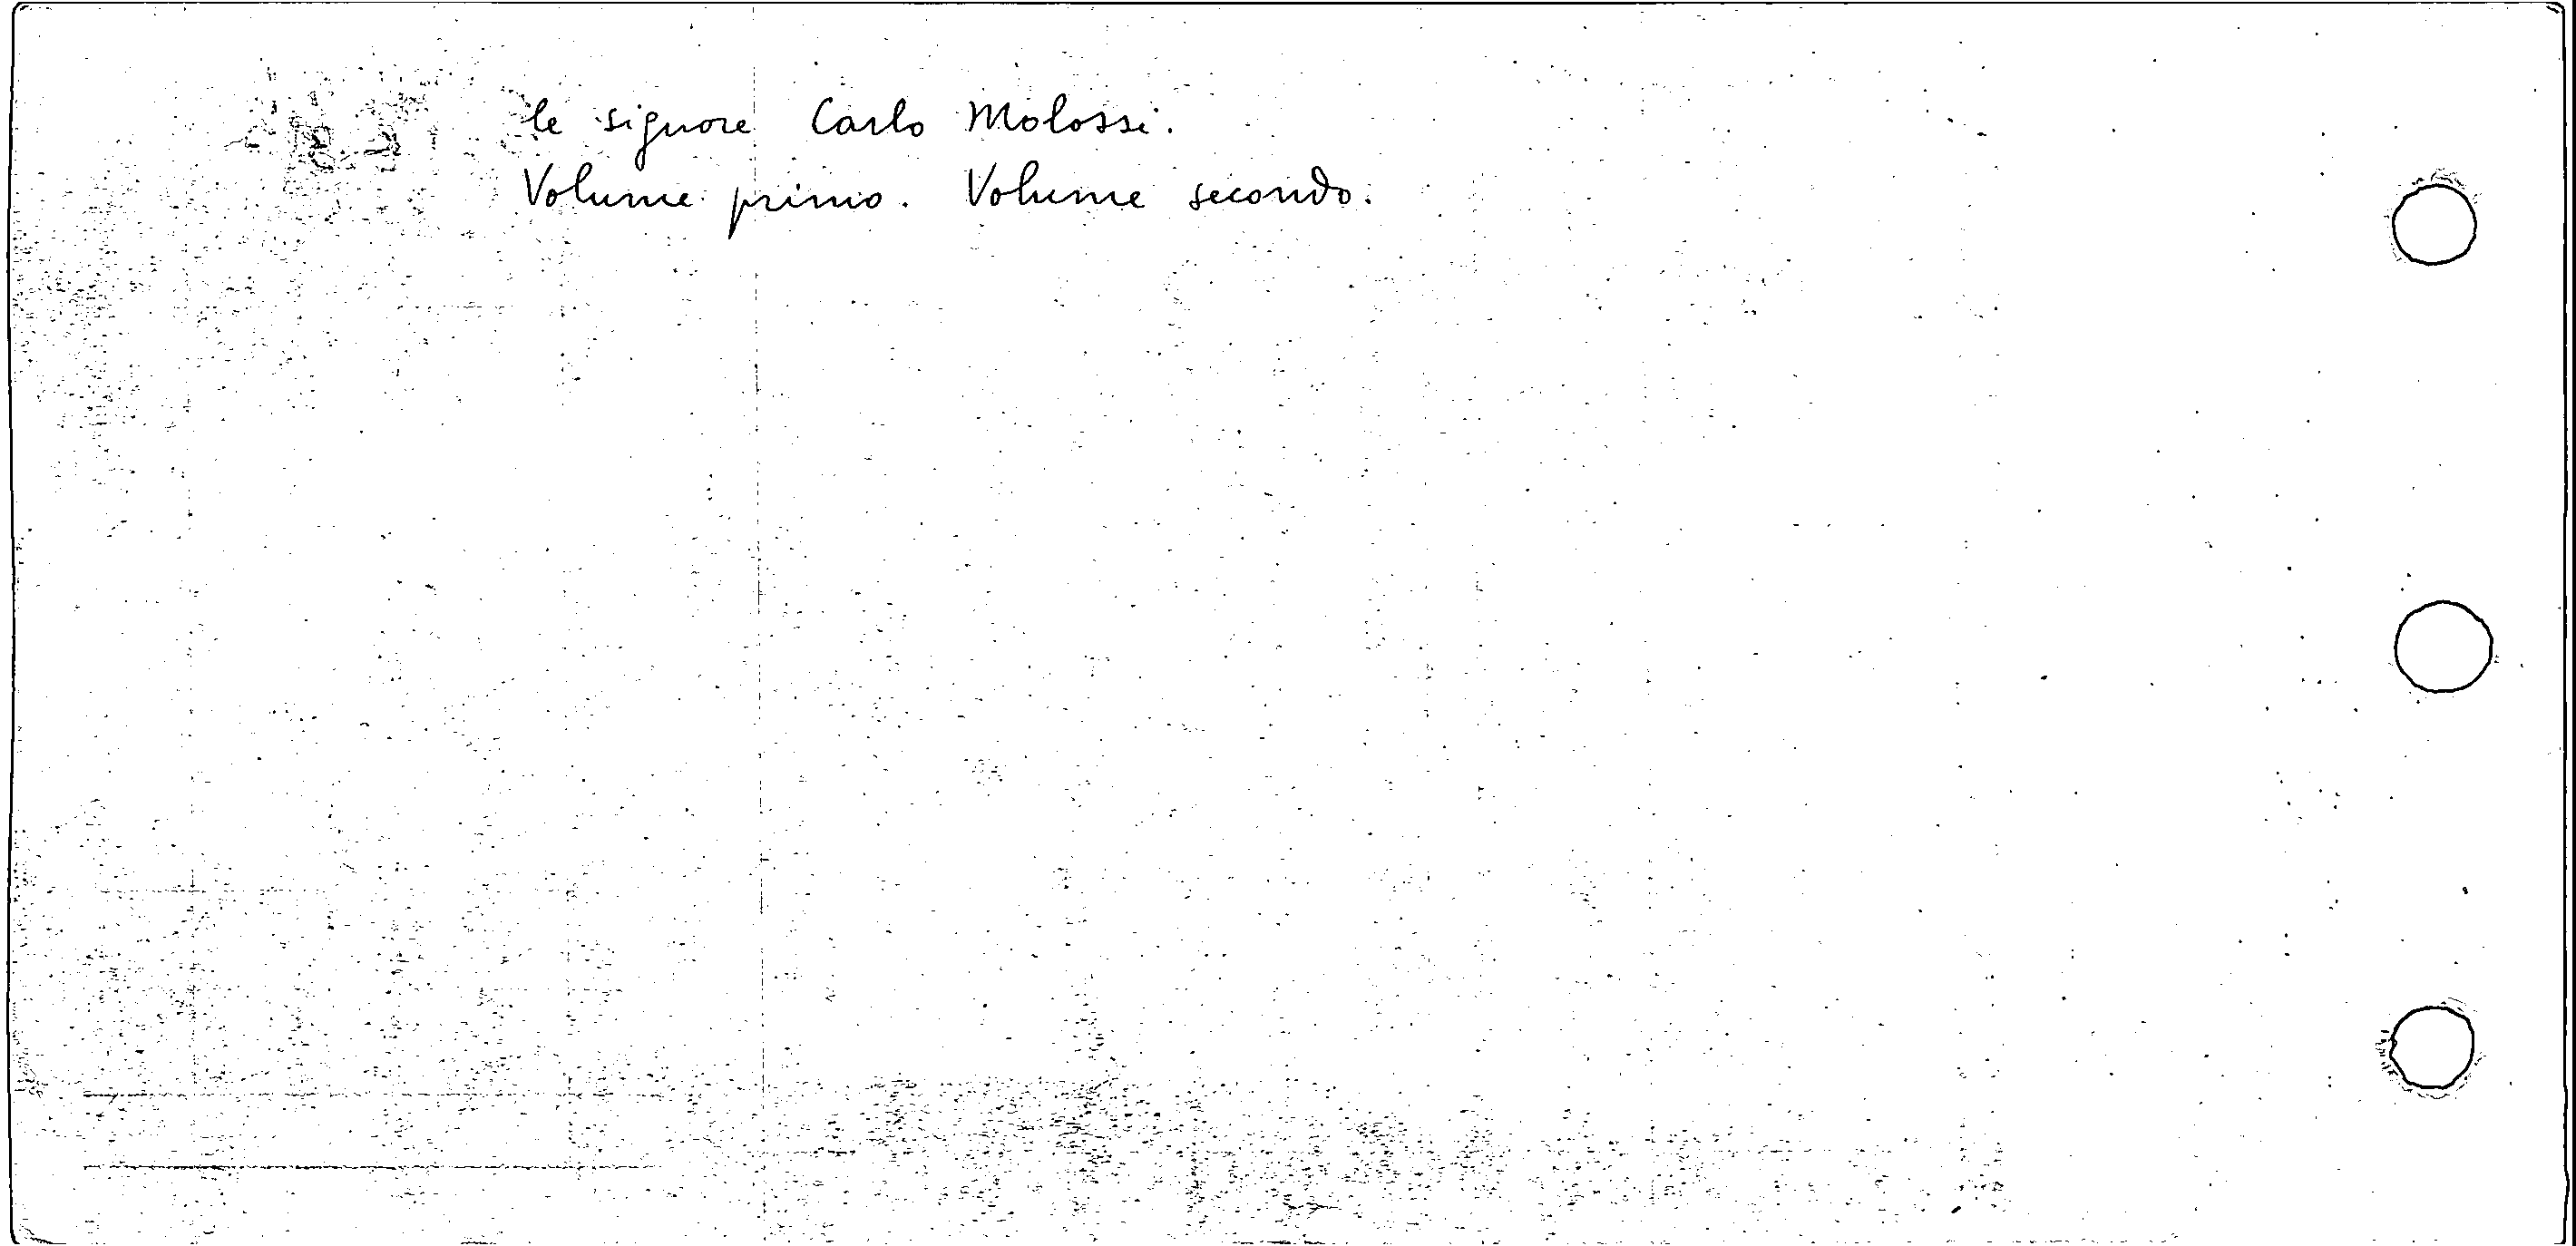 le signore Carlo Molossi.
Volume primo. Volume secondo.